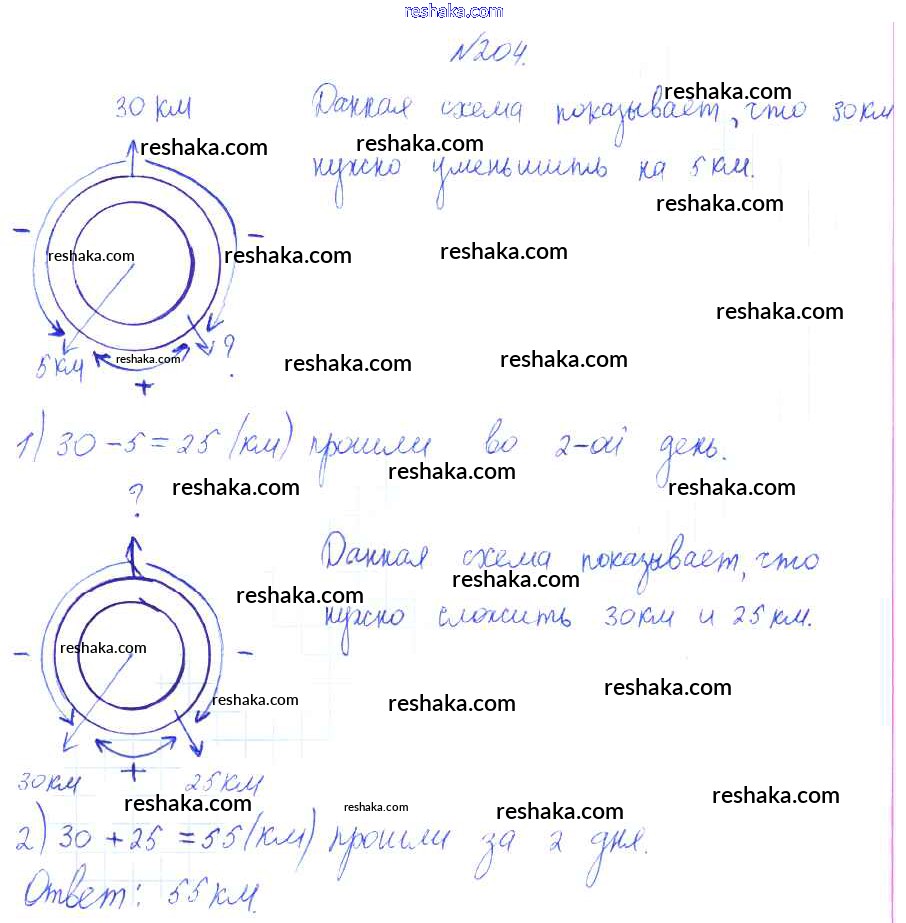 reshaka.com
№204.
30 км
Данная схема показывает, что 30км
нужно уменьшить на 5км.
reshaka.com
reshaka.com
reshaka.com
reshaka.com
-
-
reshaka.com
reshaka.com
reshaka.com
reshaka.com
5км
reshaka.com
?
reshaka.com
reshaka.com
+
1) 30-5=25 (км) прошли во 2-ой день.
reshaka.com
reshaka.com
reshaka.com
?
Данная схема показывает, что
нужно сложить 30км и 25км.
reshaka.com
reshaka.com
-
-
reshaka.com
reshaka.com
reshaka.com
reshaka.com
+
30км 25км
reshaka.com
reshaka.com
reshaka.com
reshaka.com
2) 30 + 25 = 55 (км) прошли за 2 дня.
Ответ: 55км.